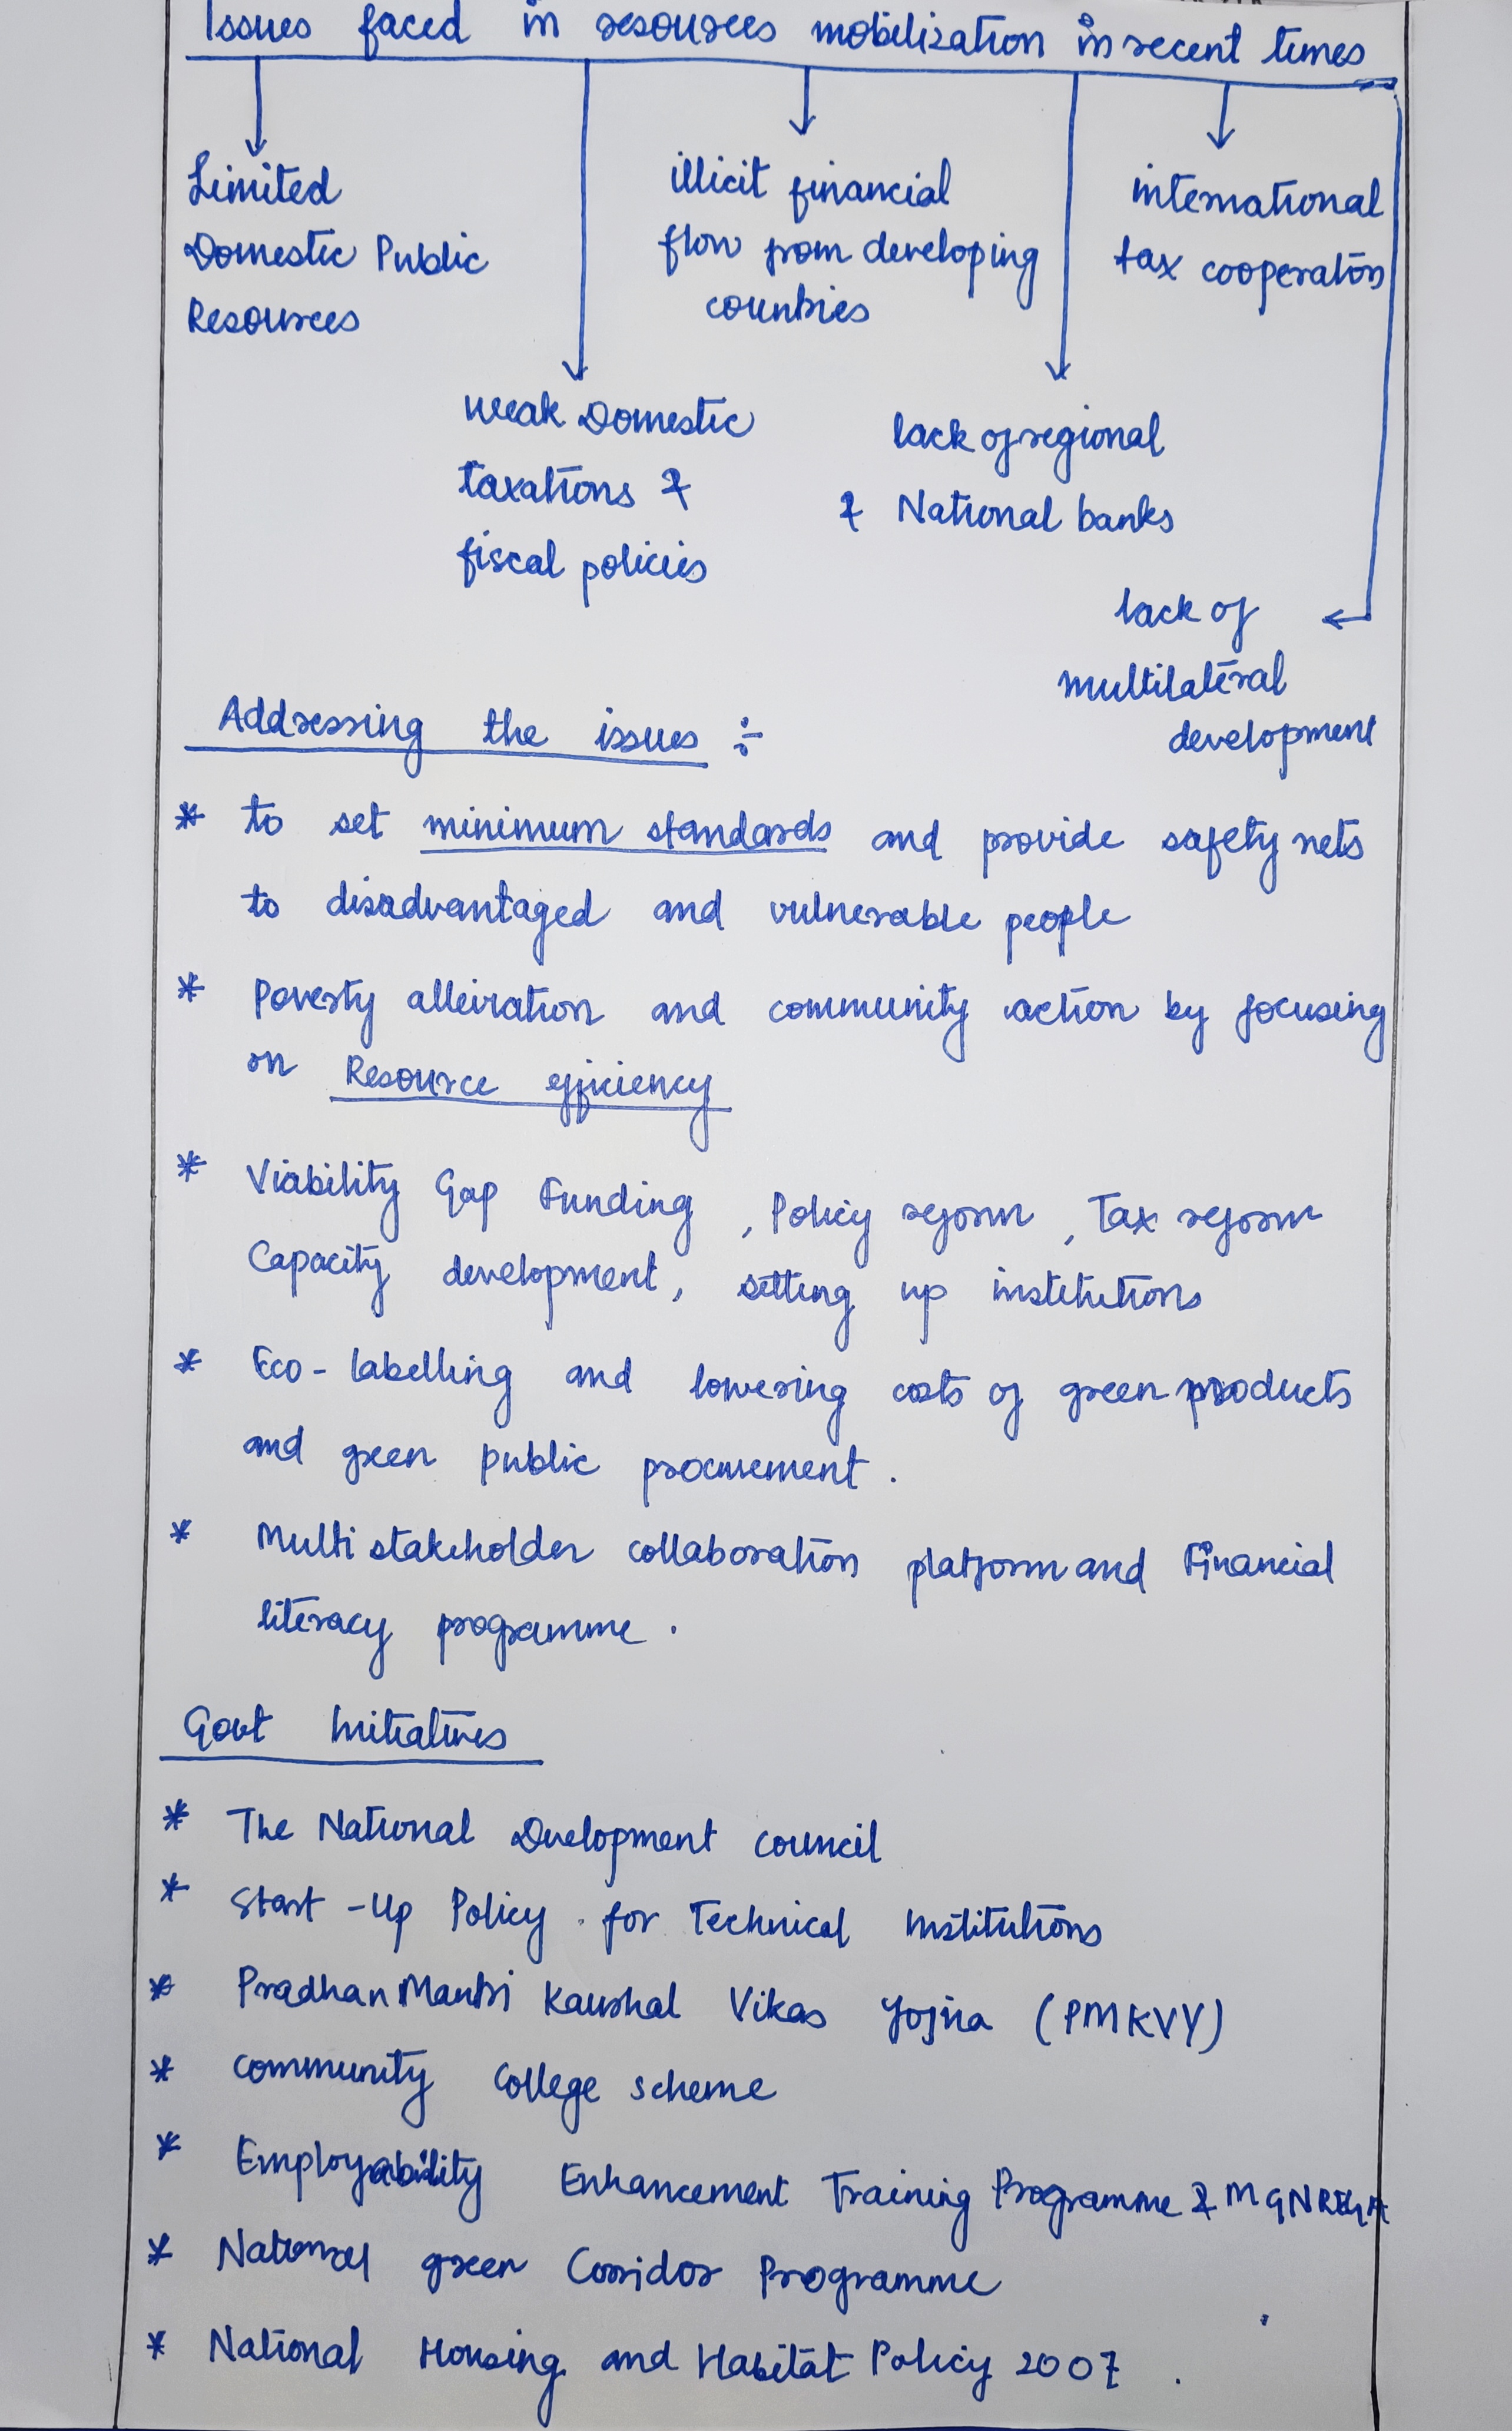 Issues faced in resources mobilization in recent times
Limited
Domestic Public
Resources
weak Domestic
taxations &
fiscal policies
illicit financial
flow from developing
countries
lack of regional
& National banks
international
tax cooperation
lack of
multilateral
development
Addressing the issues :-
* to set minimum standards and provide safety nets
to disadvantaged and vulnerable people
* Poverty alleviation and community action by focusing
on Resource efficiency
* Viability Gap Funding , Policy reform , Tax reform
Capacity development, setting up institutions
* Eco-labelling and lowering costs of green products
and green public procurement .
* Multi stakeholder collaboration platform and Financial
literacy programme .
Govt Initiatives
* The National Development Council
* Start-Up Policy for Technical Institutions
* Pradhan Mantri Kaushal Vikas Yojna (PMKVY)
* Community College scheme
* Employability Enhancement Training Programme & MGNREGA
* National green Corridor Programme
* National Housing and Habitat Policy 2007 .